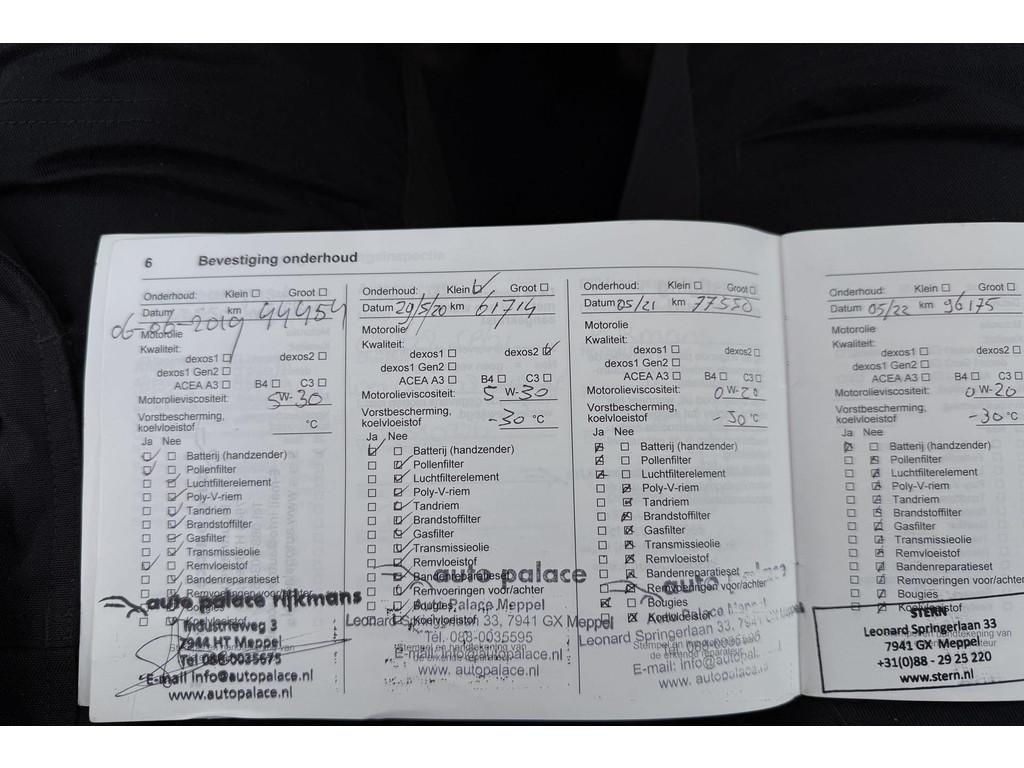 6 Bevestiging onderhoud
Onderhoud: Klein Groot
Datum km
06-06-2019 44454
Motorolie
Kwaliteit:
dexos1 dexos2
dexos1 Gen2
ACEA A3 B4 C3
Motorolieviscositeit: 5 W-30
Vorstbescherming,
koelvloeistof °C
Ja Nee
Batterij (handzender)
Pollenfilter
Luchtfilterelement
Poly-V-riem
Tandriem
Brandstoffilter
Gasfilter
Transmissieolie
Remvloeistof
Bandenreparatieset
Remvoeringen voor/achter
Bougies
Koelvloeistof
auto palace rijkmans
Industrieweg 3
7944 HT Meppel
Tel 088-0035675
E-mail info@autopalace.nl
www.autopalace.nl
Onderhoud: Klein Groot
Datum 29/5/20 km 61714
Motorolie
Kwaliteit:
dexos1 dexos2
dexos1 Gen2
ACEA A3 B4 C3
Motorolieviscositeit: 5 W-30
Vorstbescherming,
koelvloeistof -30 °C
Ja Nee
Batterij (handzender)
Pollenfilter
Luchtfilterelement
Poly-V-riem
Tandriem
Brandstoffilter
Gasfilter
Transmissieolie
Remvloeistof
Bandenreparatieset
Remvoeringen voor/achter
Bougies
Koelvloeistof
auto palace
Auto Palace Meppel
Leonard Springerlaan 33, 7941 GX Meppel
Tel. 088-0035595
Stempel en handtekening van
de erkende reparateur
E-mail: info@autopalace.nl
www. autopalace.nl
Onderhoud: Klein Groot
Datum 05/21 km 77550
Motorolie
Kwaliteit:
dexos1 dexos2
dexos1 Gen2
ACEA A3 B4 C3
Motorolieviscositeit: 0 W-20
Vorstbescherming,
koelvloeistof -30 °C
Ja Nee
Batterij (handzender)
Pollenfilter
Luchtfilterelement
Poly-V-riem
Tandriem
Brandstoffilter
Gasfilter
Transmissieolie
Remvloeistof
Bandenreparatieset
Remvoeringen voor/achter
Bougies
Koelvloeistof
auto
Leonard Springerlaan 33, 7941
Stempel en handtekening van
de erkende reparateur
E-mail: info@autopal
www. autopalace.nl
Onderhoud: Klein Groot
Datum 05/22 km 96175
Motorolie
Kwaliteit:
dexos1 dexos2
dexos1 Gen2
ACEA A3 B4 C3
Motorolieviscositeit: 0 W-20
Vorstbescherming,
koelvloeistof -30 °C
Ja Nee
Batterij (handzender)
Pollenfilter
Luchtfilterelement
Poly-V-riem
Tandriem
Brandstoffilter
Gasfilter
Transmissieolie
Remvloeistof
Bandenreparatieset
Remvoeringen voor/achter
Bougies
Koelvloeistof
STERN
Leonard Springerlaan 33
7941 GX Meppel
+31(0)88 - 29 25 220
www.stern.nl